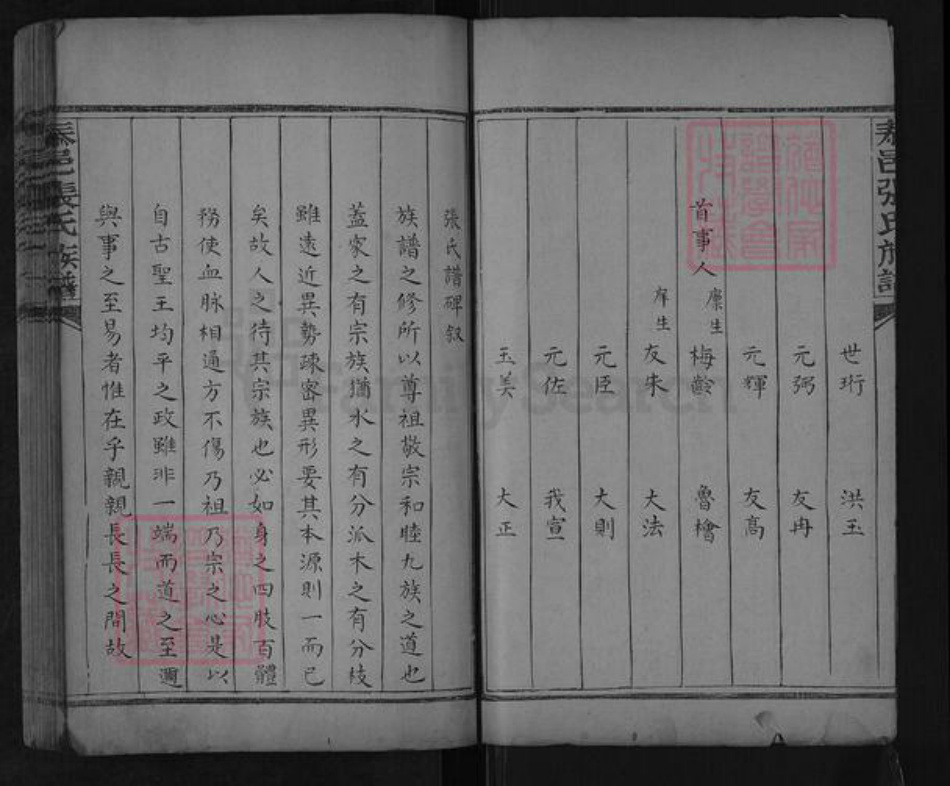 泰邑張氏族譜
世珩 洪玉
元弼 友冉
元輝 友高
首事人 廩生 梅齡 魯檜
庠生 友朱 大法
元臣 大則
元佐 我宣
玉美 大正
張氏譜碑叙
族譜之修所以尊祖敬宗和睦九族之道也
蓋家之有宗族猶水之有分派木之有分枝
雖遠近異勢疎密異形要其本源則一而已
矣故人之待其宗族也必如身之四肢百體
務使血脉相通方不傷乃祖乃宗之心是以
自古聖王均平之政雖非一端而道之至邇
與事之至易者惟在乎親親長長之間故
泰邑張氏族譜
FamilySearch